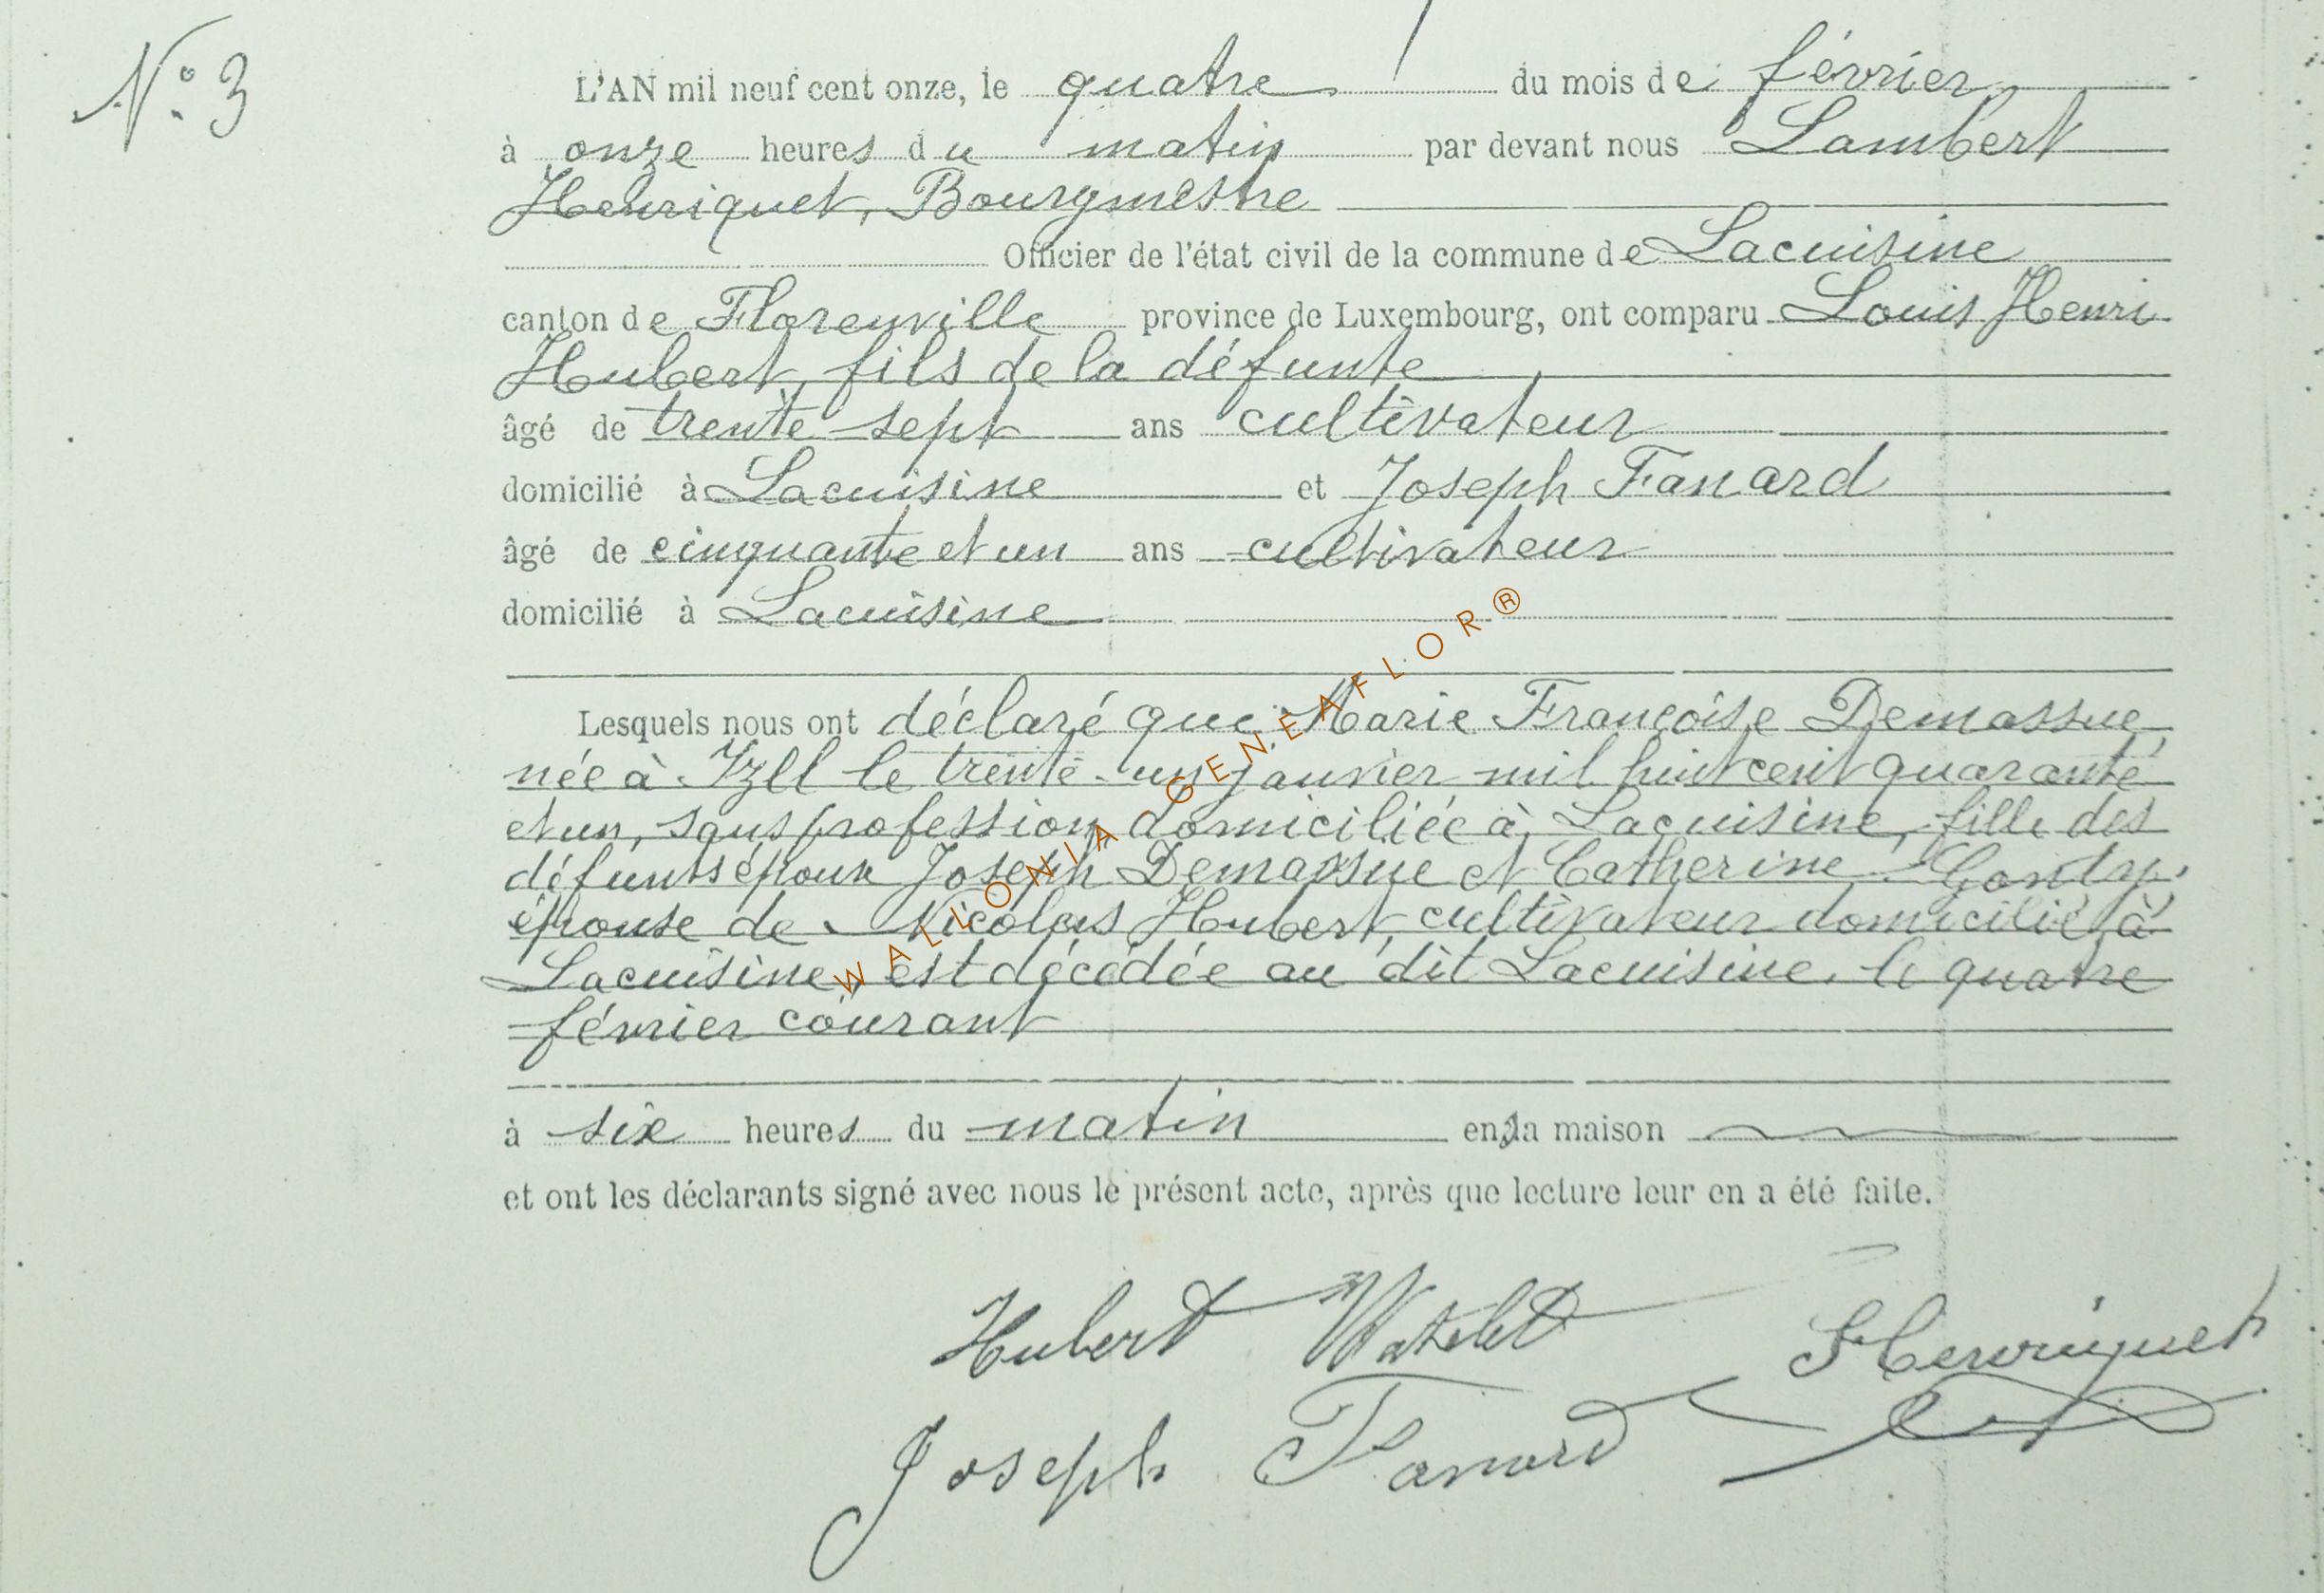 N° 3
L'AN mil neuf cent onze, le quatre du mois de février
à onze heures du matin par devant nous Lambert
Henriquet, Bourgmestre
Officier de l'état civil de la commune de Lacuisine
canton de Florenville province de Luxembourg, ont comparu Louis Henri
Hubert, fils de la défunte
âgé de trente-sept ans cultivateur
domicilié à Lacuisine et Joseph Fanard
âgé de cinquante et un ans cultivateur
domicilié à Lacuisine
Lesquels nous ont déclaré que Marie Françoise Demassue,
née à Izel le trente-un janvier mil huit cent quarante
et un, sans profession domiciliée à Lacuisine, fille des
défunts époux Joseph Demassue et Catherine Gondry,
épouse de Nicolas Hubert, cultivateur domicilié à
Lacuisine, est décédée au dit Lacuisine, le quatre
février courant
à six heures du matin en sa maison
et ont les déclarants signé avec nous le présent acte, après que lecture leur en a été faite.
Hubert Watelet Henriquet
Joseph Fanard
WALLONIA GENEAFLOR®